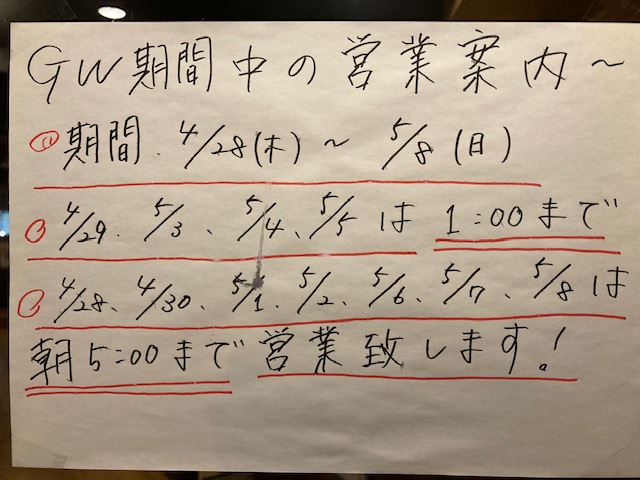 GW期間中の営業案内～
◎期間. 4/28(木) ～ 5/8(日)
○4/29. 5/3、5/4、5/5は 1:00まで
○4/28、4/30、5/1、5/2、5/6、5/7、5/8は
朝5:00まで営業致します!